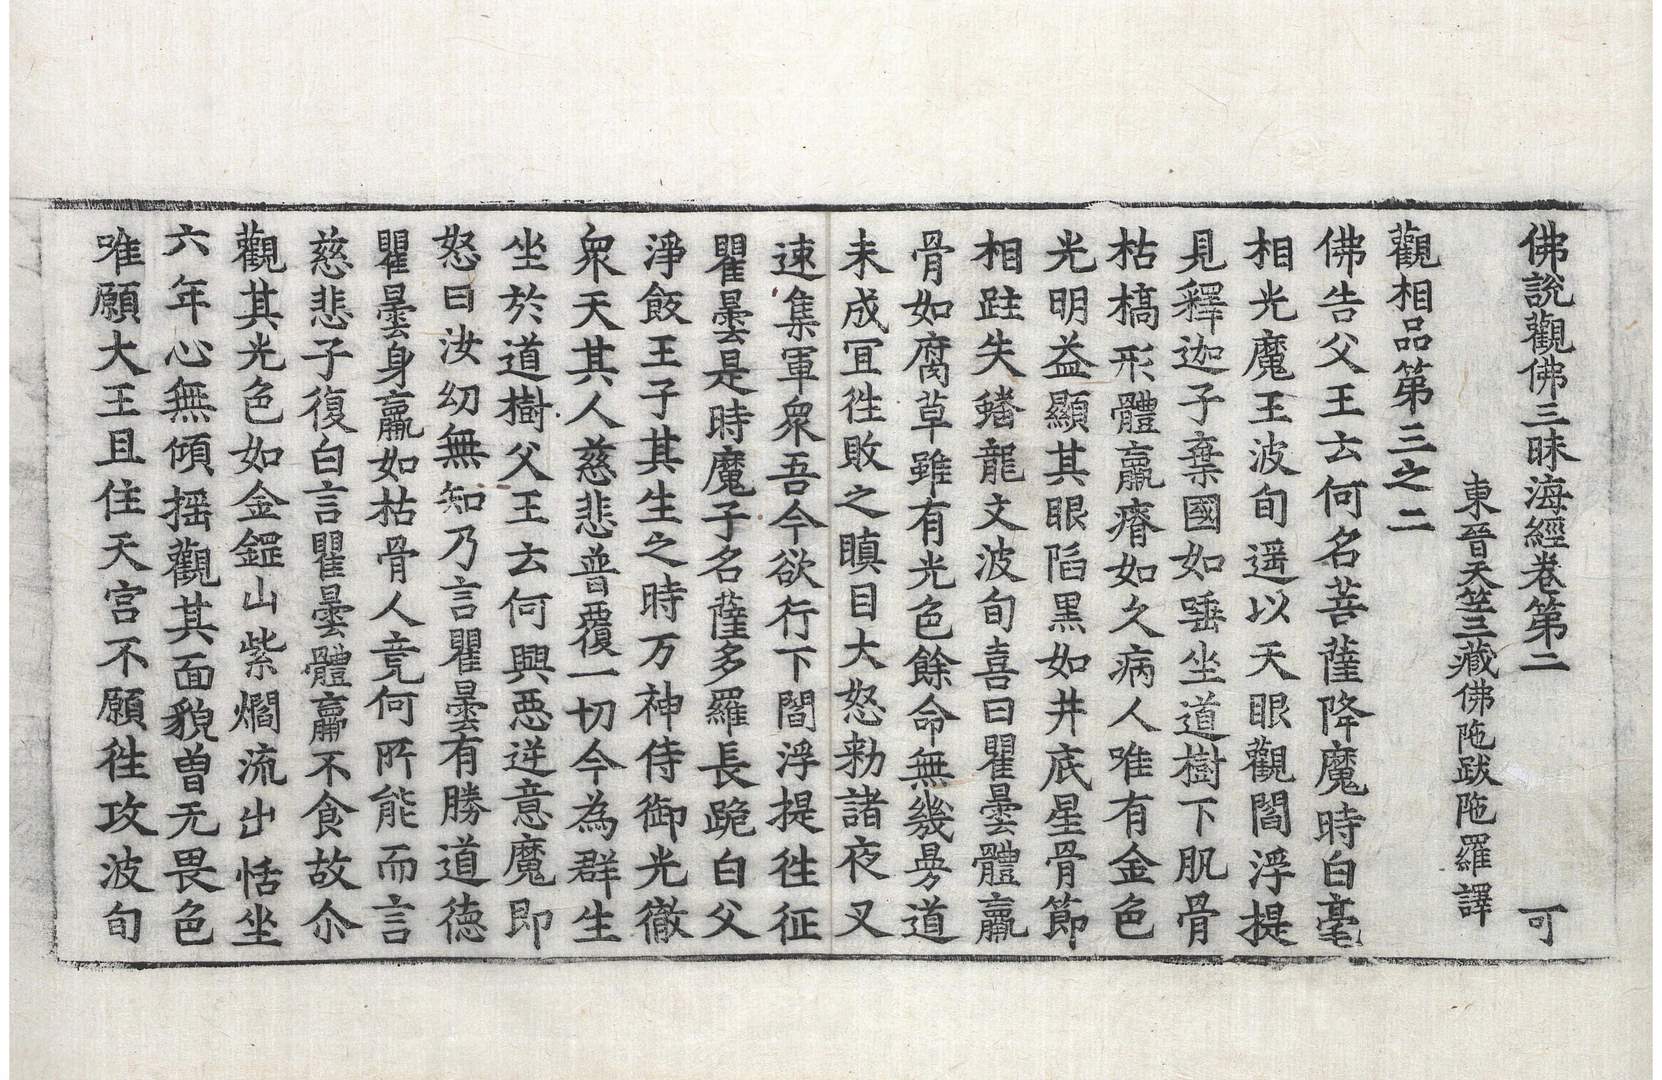 佛說觀佛三昧海經卷第二 可
東晉天竺三藏佛陁跋陁羅譯
觀相品第三之二
佛告父王云何名菩薩降魔時白毫
相光魔王波旬遥以天眼觀閻浮提
見釋迦子棄國如唾坐道樹下肌骨
枯槁形體羸瘠如久病人唯有金色
光明益顯其眼陷黒如井底星骨節
相跓失蟠龍文波旬喜曰瞿曇體羸
骨如腐草雖有光色餘命無幾㝵道
未成冝徃敗之瞋目大怒勑諸夜叉
速集軍衆吾今欲行下閻浮提徃征
瞿曇是時魔子名薩多羅長跪白父
淨飯王子其生之時万神侍御光徹
衆天其人慈悲普覆一切今為群生
坐於道樹父王云何興惡逆意魔即
怒曰汝幼無知乃言瞿曇有勝道德
瞿曇身羸如枯骨人竟何所能而言
慈悲子復白言瞿曇體羸不食故尒
觀其光色如金鋌山紫爓流出恬坐
六年心無傾摇觀其面貌曽无畏色
唯願大王且住天宮不願徃攻波旬